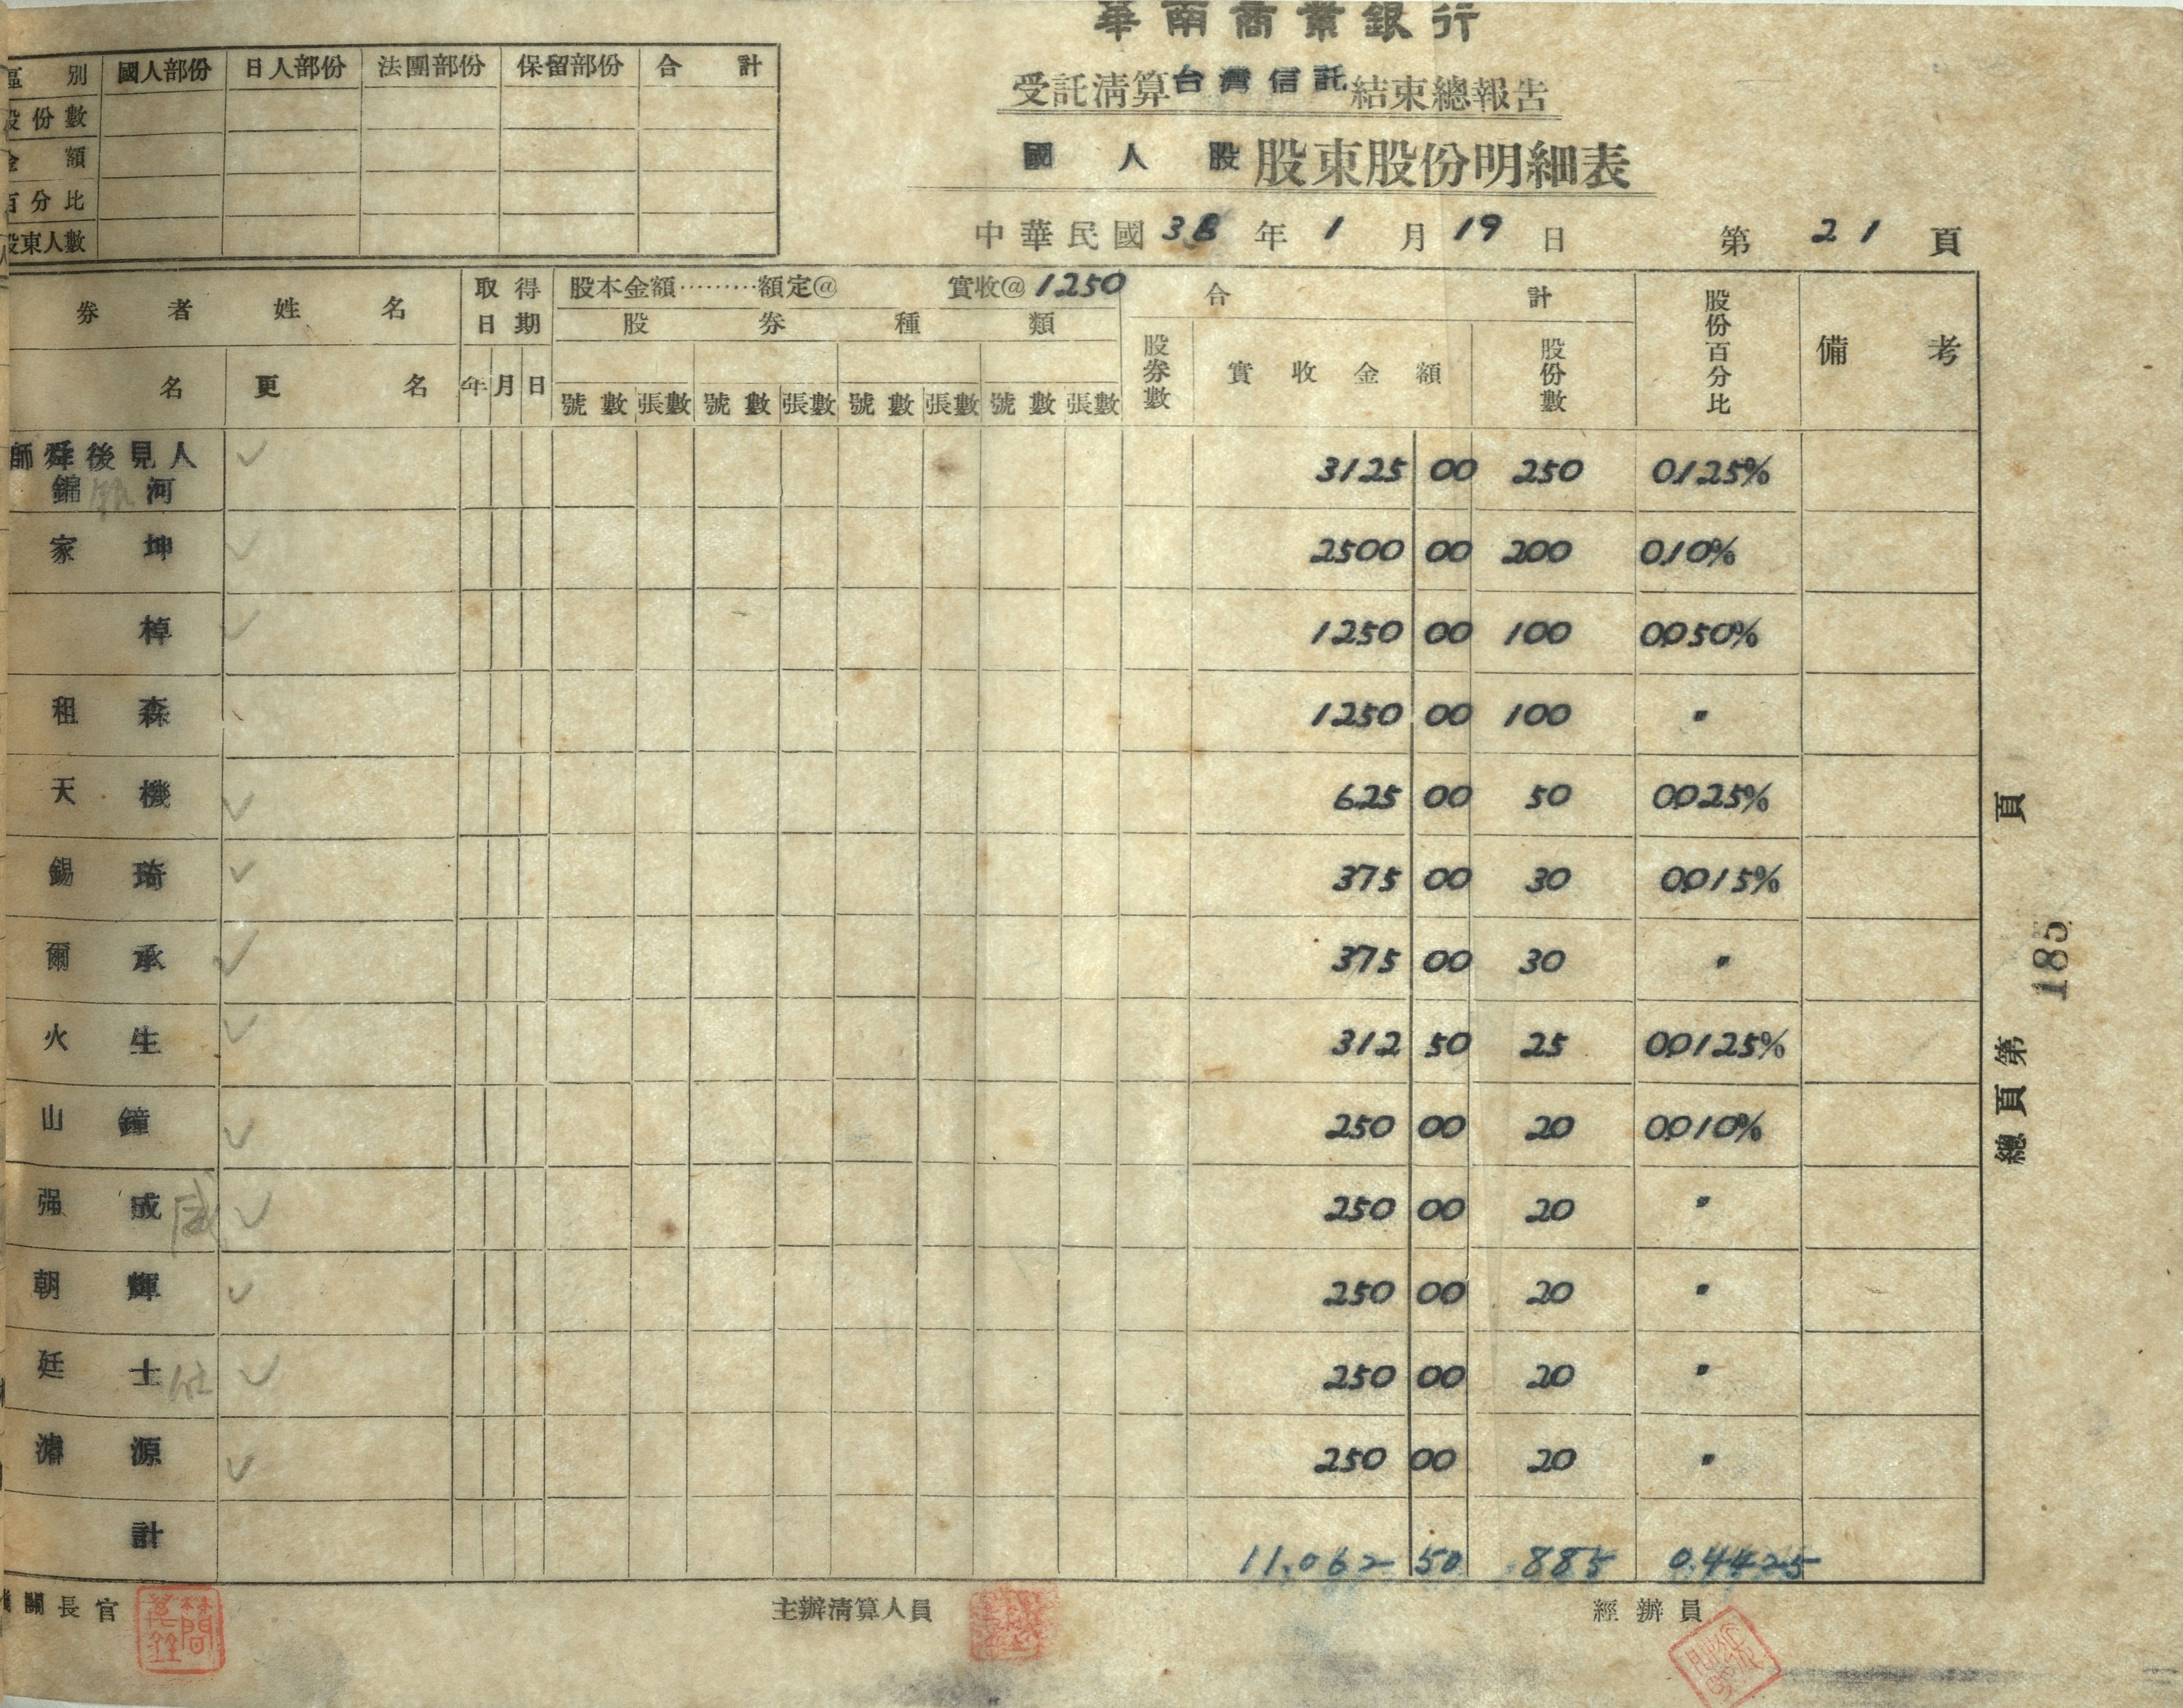 華南商業銀行
受託清算台灣信託結束總報告
國人股股東股份明細表
中華民國38年1月19日 第21頁
區別 國人部份 日人部份 法團部份 保留部份 合計
股份數
金額
百分比
股東人數
券者姓名 取得日期 股本金額………額定@ 實收@1250 合計 股份百分比 備考
股券種類
名 更名 年 月 日 號數 張數 號數 張數 號數 張數 號數 張數 股券數 實收金額 股份數
師舜後見人
錦河 3125 00 250 0.125%
家坤 2500 00 200 0.10%
棹 1250 00 100 0.050%
租森 1250 00 100 〃
天機 625 00 50 0.025%
錫琦 375 00 30 0.015%
爾承 375 00 30 〃
火生 312 50 25 0.0125%
山鐘 250 00 20 0.010%
强成 250 00 20 〃
朝輝 250 00 20 〃
廷士 250 00 20 〃
濬源 250 00 20 〃
計 11,062 50 885 0.4425
機關長官 主辦清算人員 經辦員
總頁第185頁